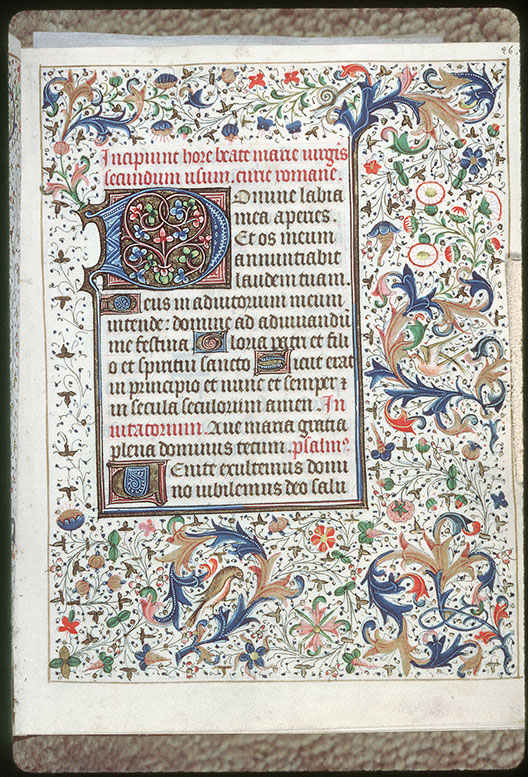 26.
Incipiunt hore beate marie uirgis
secundum usum. curie romane.
Domine labia
mea aperies.
Et os meum
annunciabit
laudem tuam.
Deus in adiutorium meum
intende: domine ad adiuuandū
me festina Gloria patri et fili
o et spiritui sancto Sicut erat
in principio et nunc et semper ⁊
in secula seculorum amen. In
uitatorium. Aue maria gratia
plena dominus tecum. psalmꝰ.
Uenite exultemus domi
no iubilemus deo salu